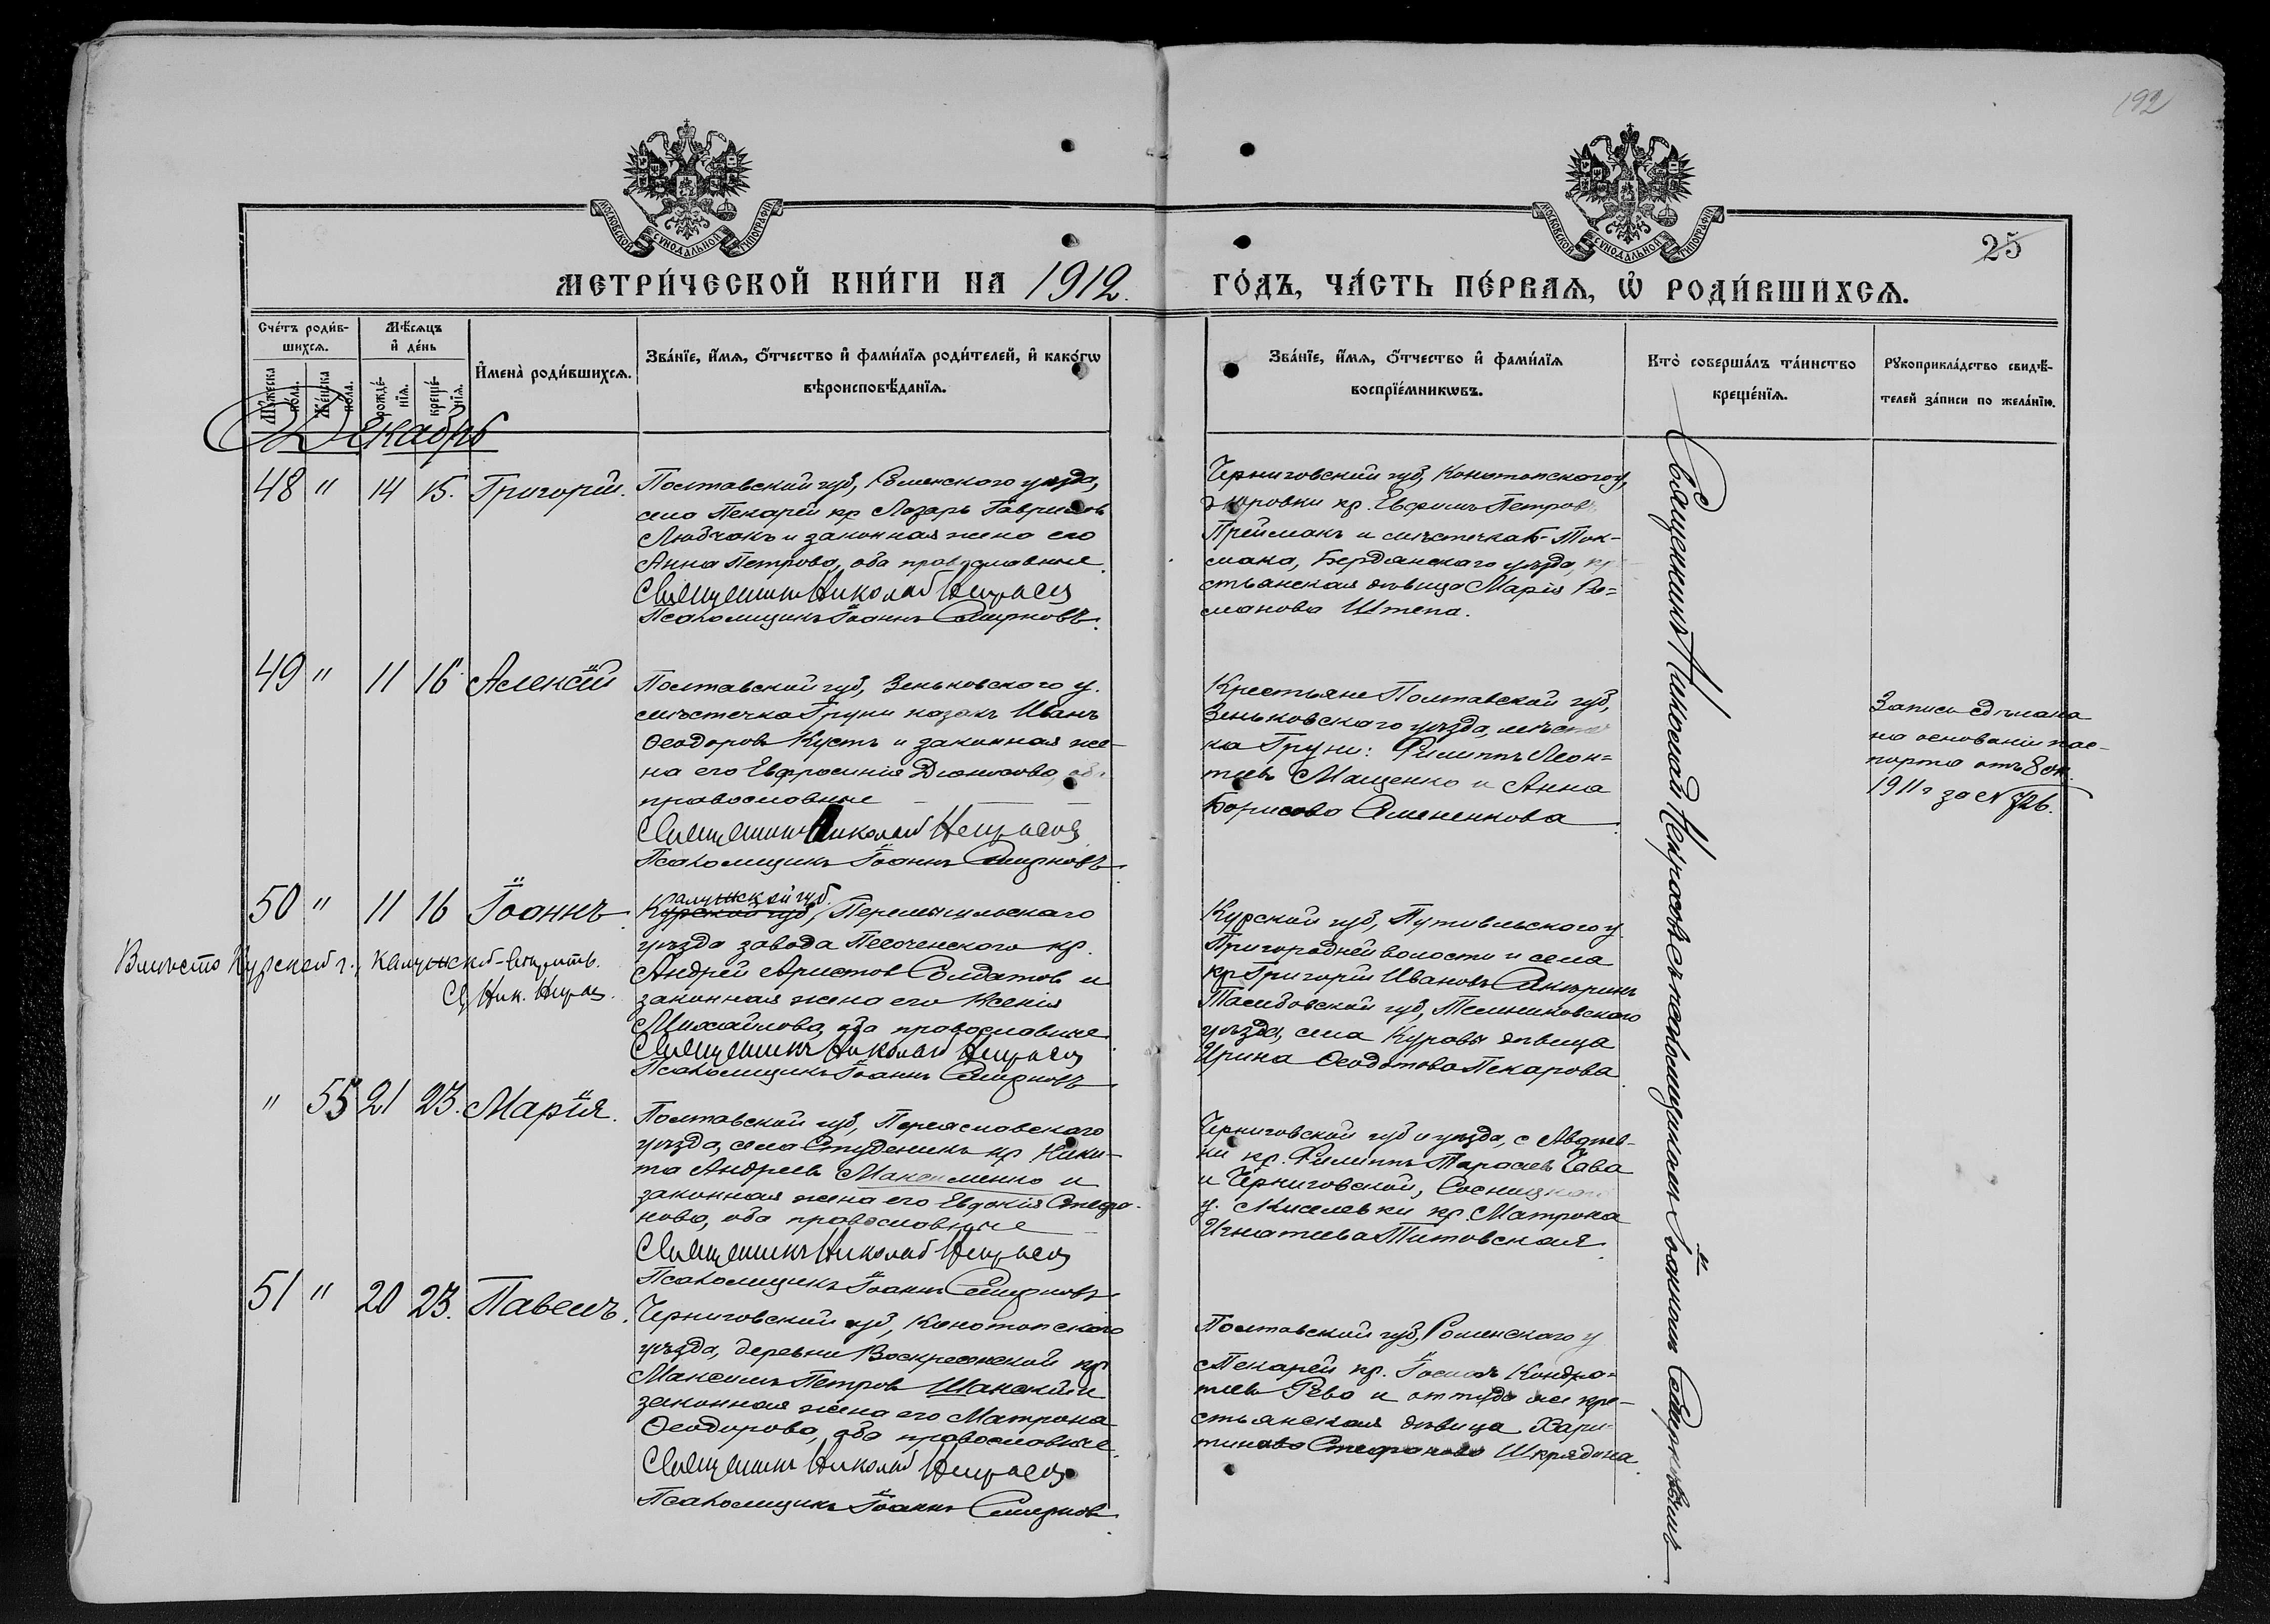 192
МОСКОВСКОЙ СѴНОДАЛЬНОЙ ТИПОГРАФІИ
МОСКОВСКОЙ СѴНОДАЛЬНОЙ ТИПОГРАФІИ
25
МЕТРИ́ЧЕСКОЙ КНИ́ГИ НА 1912.
ГО́ДЪ, ЧА́СТЬ ПЕ́РВАЯ, Ѡ РОДИ́ВШИХСЯ.
Сче́тъ роди́вшихся.
Мѣ́сяцъ и де́нь
Му́жеска по́ла.
Же́нска по́ла.
рожде́нїя.
креще́нїя.
И́мена̀ роди́вшихся.
Зва́нїе, и́мя, о́тчество и фами́лїя роди́телей, и како́гѡ
вѣроисповѣ́данїя.
Зва́нїе, и́мя, о́тчество и фами́лїя
воспрїе́мникѡвъ.
Кто̀ соверша́лъ та́инство
креще́нїя.
Рꙋкоприкла́дство свидѣ́-
телей за́писи по жела́нїю.
Декабрь
48 " 14 15. Григорій.
Полтавской губ, Роменскаго уѣзда,
села Пекарей кр Лазарь Гавриловъ
Любчакъ и законная жена его
Анна Петрова, оба православные.
Священникъ Николай Некрасовъ
Псаломщикъ Іоаннъ Смирновъ.
Черниговской губ, Конотопскаго у,
кр. Ефимъ Петровъ
Прейманъ и мѣстечка Б-Ток-
мака, Бердянскаго уѣзда, кре
стьянская дѣвица Марія Ро=
манова Штепа.
49 " 11 16 Алексій
Полтавской губ, Зеньковскаго у.
мѣстечка Груни казакъ Иванъ
Ѳеодоровъ Кустъ и законная же-
на его Евфросинія Діонисова, оба
православные
Священникъ Николай Некрасовъ
Псаломщикъ Іоаннъ Смирновъ.
Крестьяне Полтавской губ,
Зеньковскаго уѣзда, мѣстеч
ка Груни: Филиппъ Леон=
тіевъ Мащенко и Анна
Борисова Семененкова.
Запись сдѣлана
на основаніи пас-
порта отъ 8 ок.
1911 г за № 726.
50 " 11 16 Іоаннъ
Калужской губ.
Курской губ, Перемышльскаго
уѣзда завода Песоченскаго кр.
Андрей Аристовъ Солдатовъ и
законная жена его Ксенія
Михайлова, оба православные
Священникъ Николай Некрасовъ
Псаломщикъ Іоаннъ Смирновъ
Вмѣсто Курской г., Калужской-читать.
Св Ник. Некрасов.
Курской губ, Путивльскаго у.
Пригородней волости и села
кр Григорій Ивановъ
губ,
уѣзда, села Куровы дѣвица
Ирина Ѳеодотова Пекарова.
" 55 21 23. Марія.
Полтавской губ, Переяславскаго
уѣзда, села Студеникъ кр Ники-
та Андреевъ Максименко и
законная жена его Евдокія Стефа-
нова, оба православные
Священникъ Николай Некрасовъ
Псаломщикъ Іоаннъ Смирновъ
Черниговской губ и уѣзда, с Авдѣев-
ки кр. Филиппъ Тарасіевъ Сава
и Черниговской, Сосницкаго
у. Киселевки кр. Матрона
Игнатіева Титовская.
51 " 20 23. Павелъ.
Черниговской губ, Конотопскаго
уѣзда, деревни Воскресенской кр
Максимъ Петровъ Шанскій и
законная жена его Матрона
Ѳеодорова, оба православные.
Священникъ Николай Некрасовъ
Псаломщикъ Іоаннъ Смирновъ.
Полтавской губ, Роменскаго у
с Пекарей кр. Іосифъ Кондра=
тіевъ Рева и оттуда же кре-
стьянская дѣвица Хари-
тинова Стефанова Шкрядина.
Священникъ Николай Некрасовъ съ псаломщикомъ Іоанномъ Смирновымъ